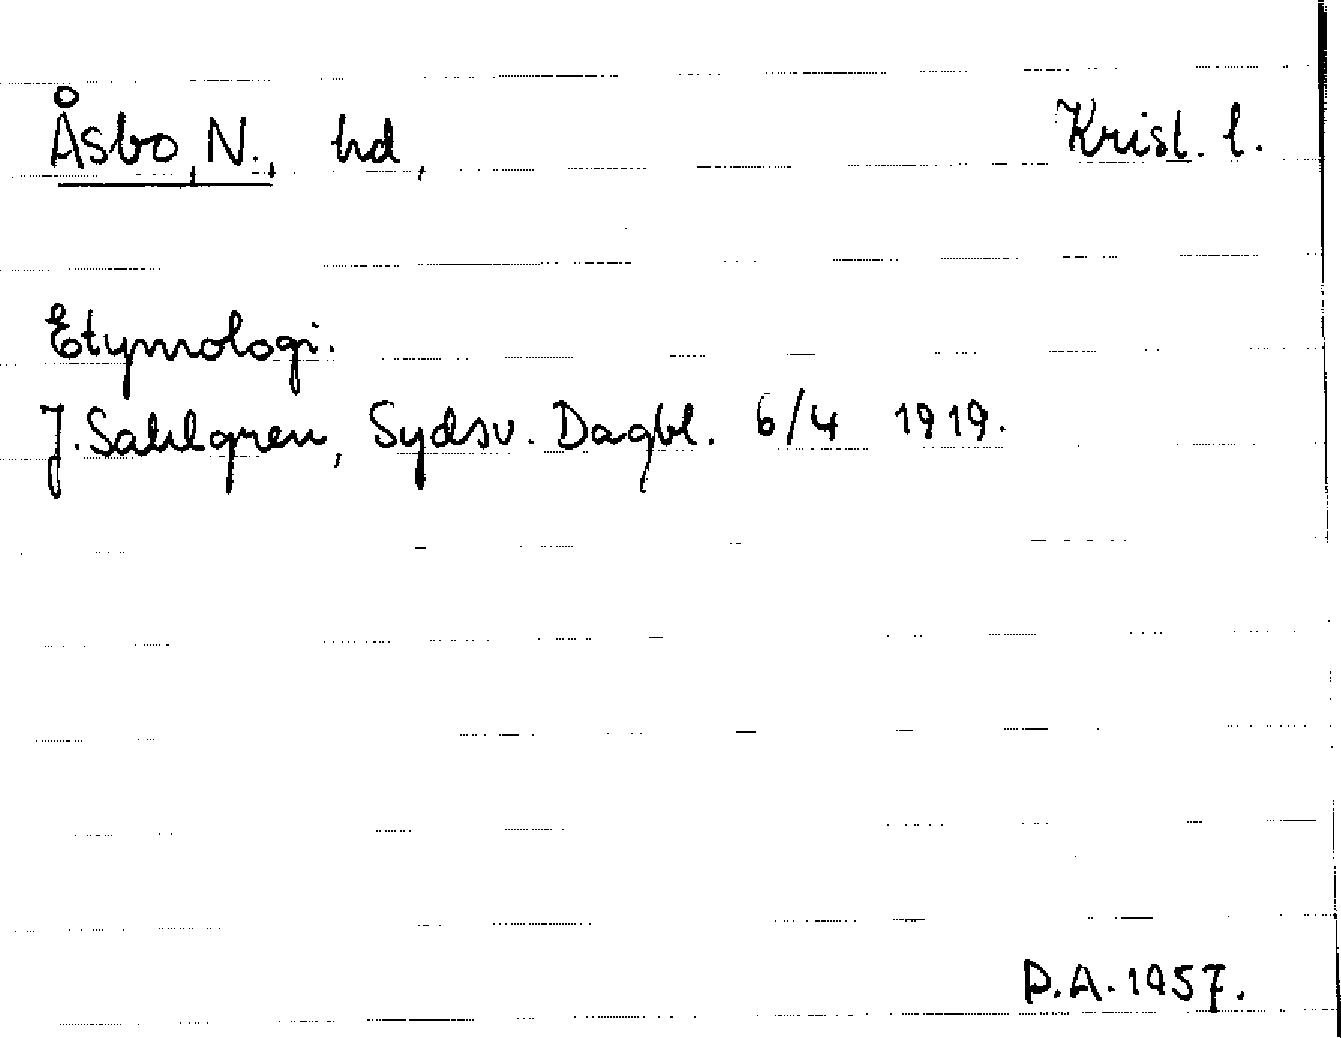 Åsbo, N., hd, Krist. l.
Etymologi.
J. Sahlgren, Sydsv. Dagbl. 6/4 1919.
D.A. 1957.